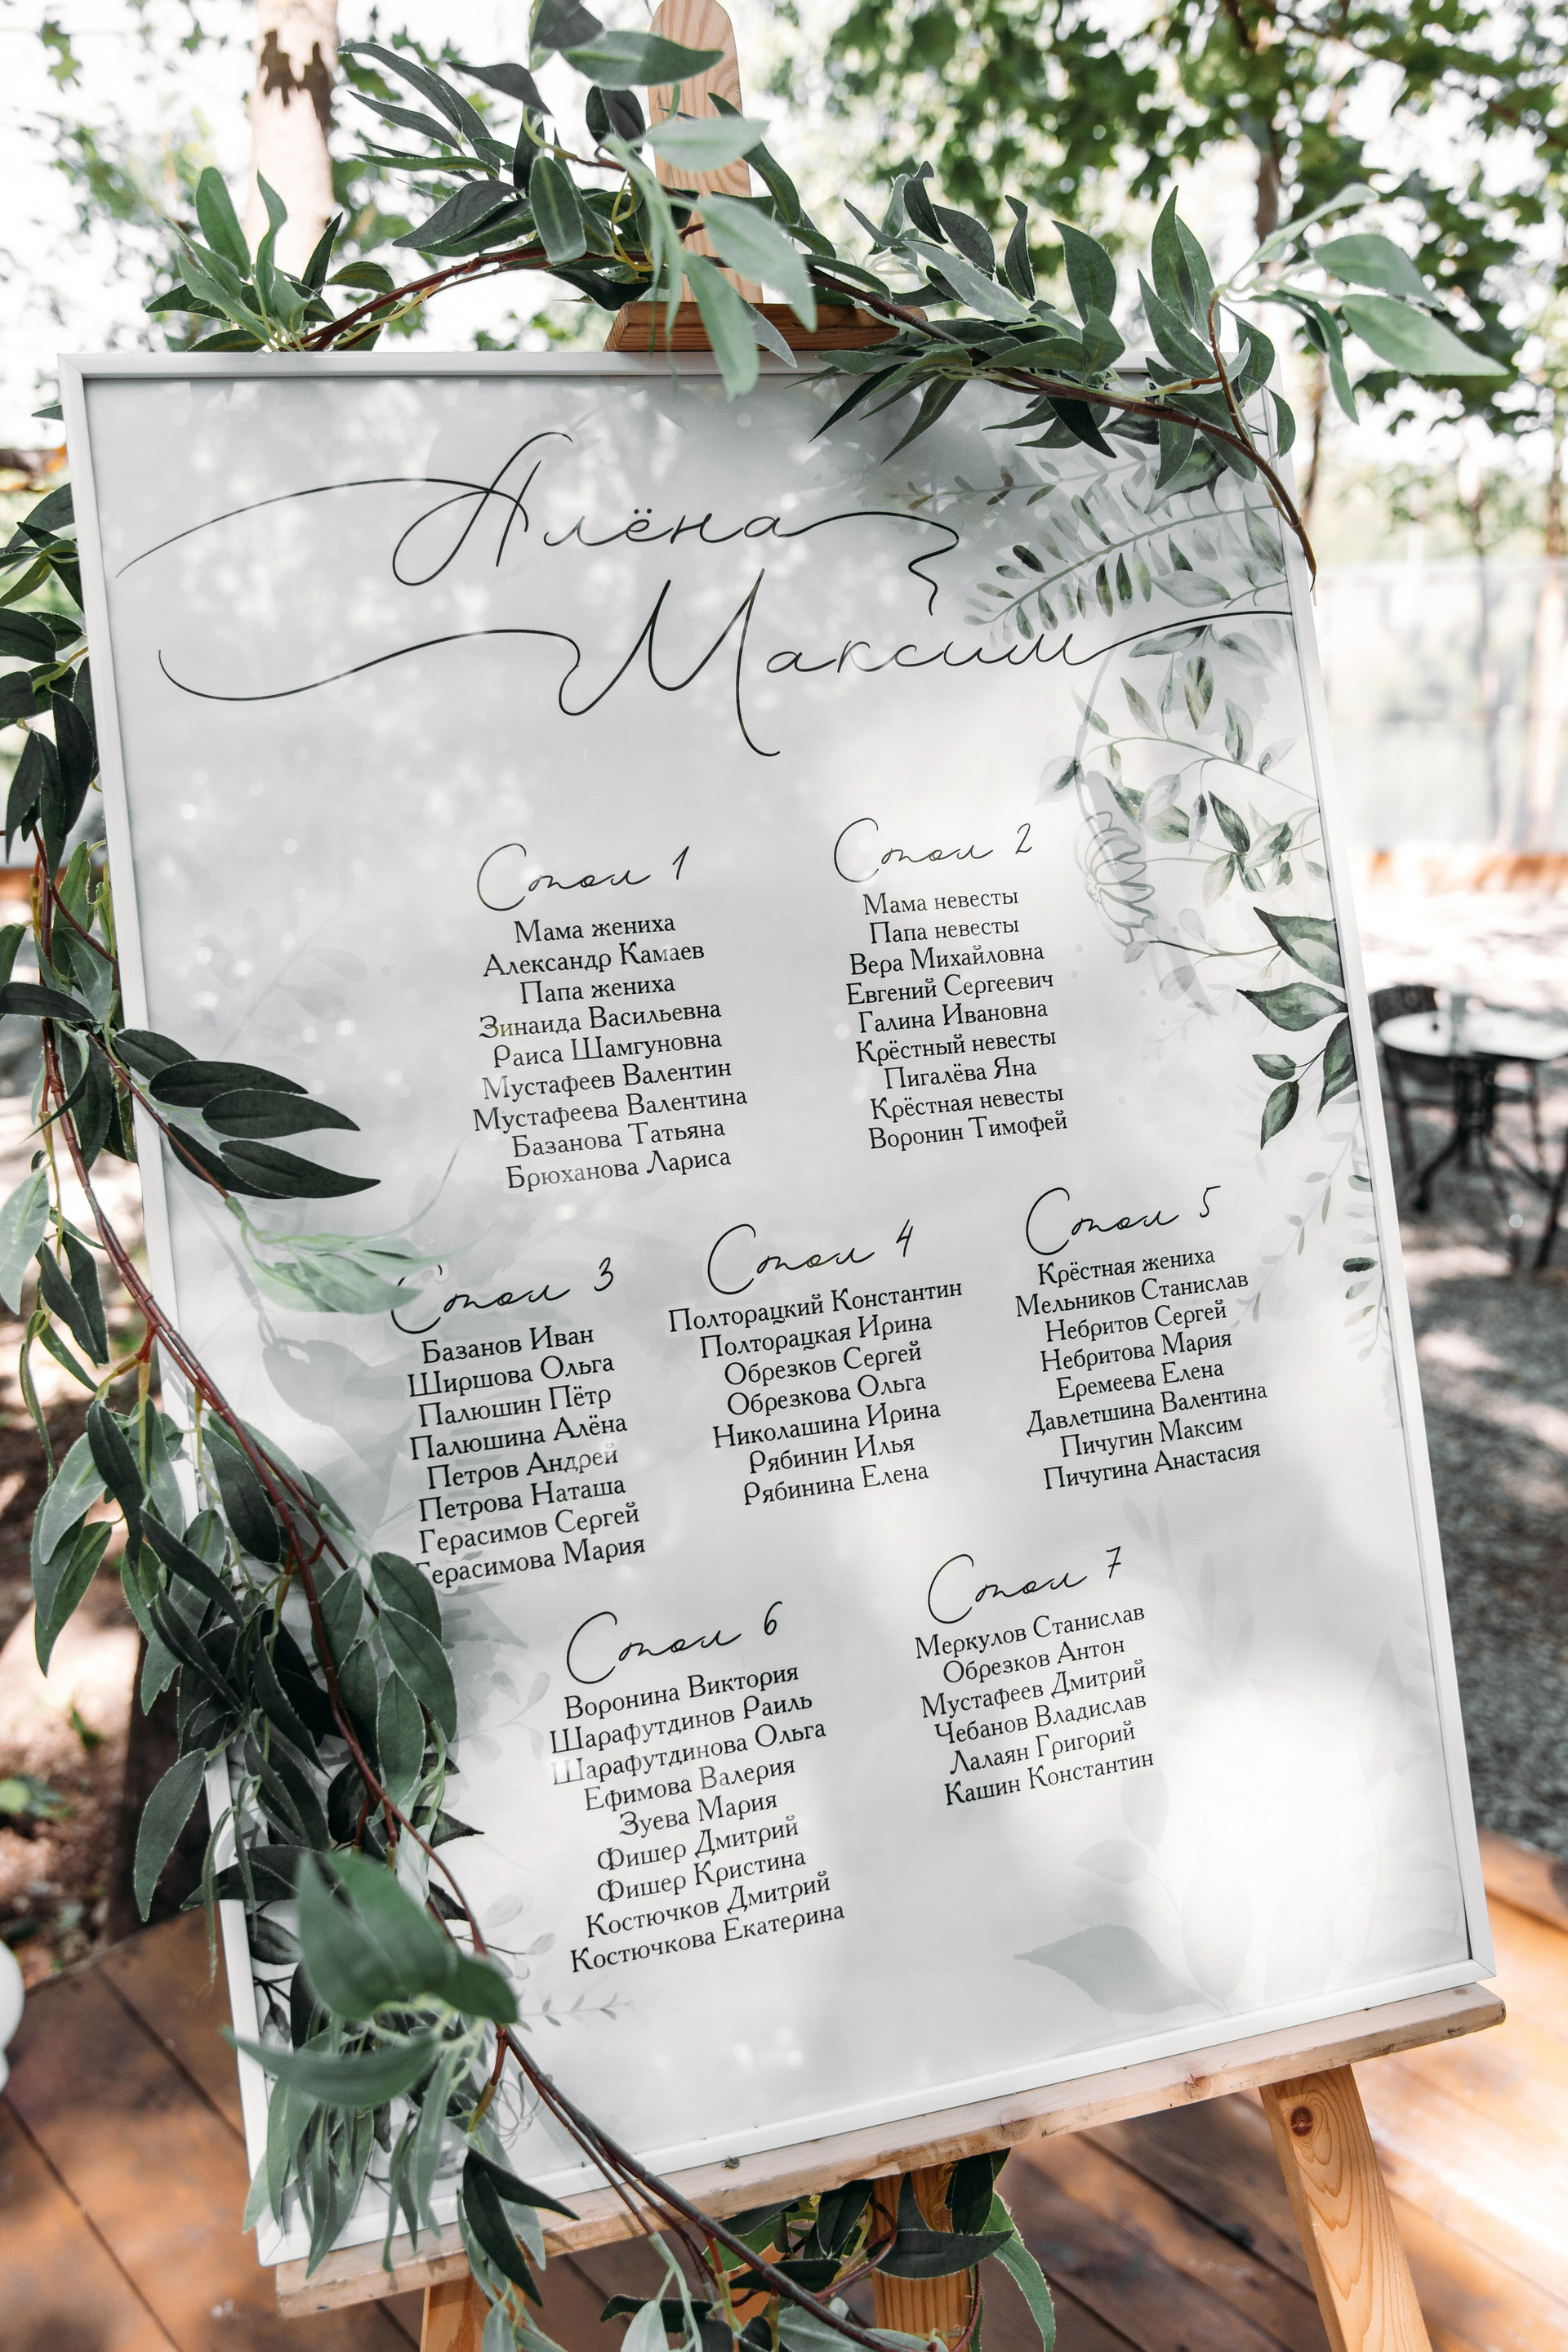 Алёна
Максим
Стол 1
Мама жениха
Александр Камаев
Папа жениха
Зинаида Васильевна
Раиса Шамгуновна
Мустафеев Валентин
Мустафеева Валентина
Базанова Татьяна
Брюханова Лариса
Стол 2
Мама невесты
Папа невесты
Вера Михайловна
Евгений Сергеевич
Галина Ивановна
Крёстный невесты
Пигалёва Яна
Крёстная невесты
Воронин Тимофей
Стол 3
Базанов Иван
Ширшова Ольга
Палюшин Пётр
Палюшина Алёна
Петров Андрей
Петрова Наташа
Герасимов Сергей
Герасимова Мария
Стол 4
Полторацкий Константин
Полторацкая Ирина
Обрезков Сергей
Обрезкова Ольга
Николашина Ирина
Рябинин Илья
Рябинина Елена
Стол 5
Крёстная жениха
Мельников Станислав
Небритов Сергей
Небритова Мария
Еремеева Елена
Давлетшина Валентина
Пичугин Максим
Пичугина Анастасия
Стол 6
Воронина Виктория
Шарафутдинов Раиль
Шарафутдинова Ольга
Ефимова Валерия
Зуева Мария
Фишер Дмитрий
Фишер Кристина
Костючков Дмитрий
Костючкова Екатерина
Стол 7
Меркулов Станислав
Обрезков Антон
Мустафеев Дмитрий
Чебанов Владислав
Лалаян Григорий
Кашин Константин